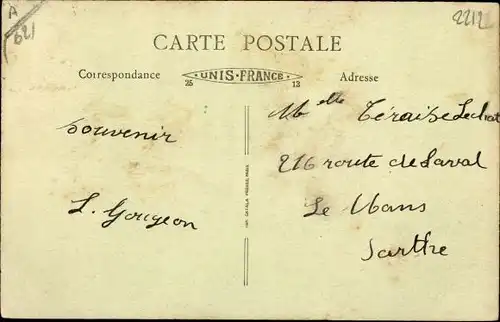 A
621
2212
CARTE POSTALE
Correspondance
UNIS-FRANCE
25
13
Adresse
Souvenir
L. Gougeon
Melle Téraise Lechat
216 route de Laval
Le Mans
Sarthe